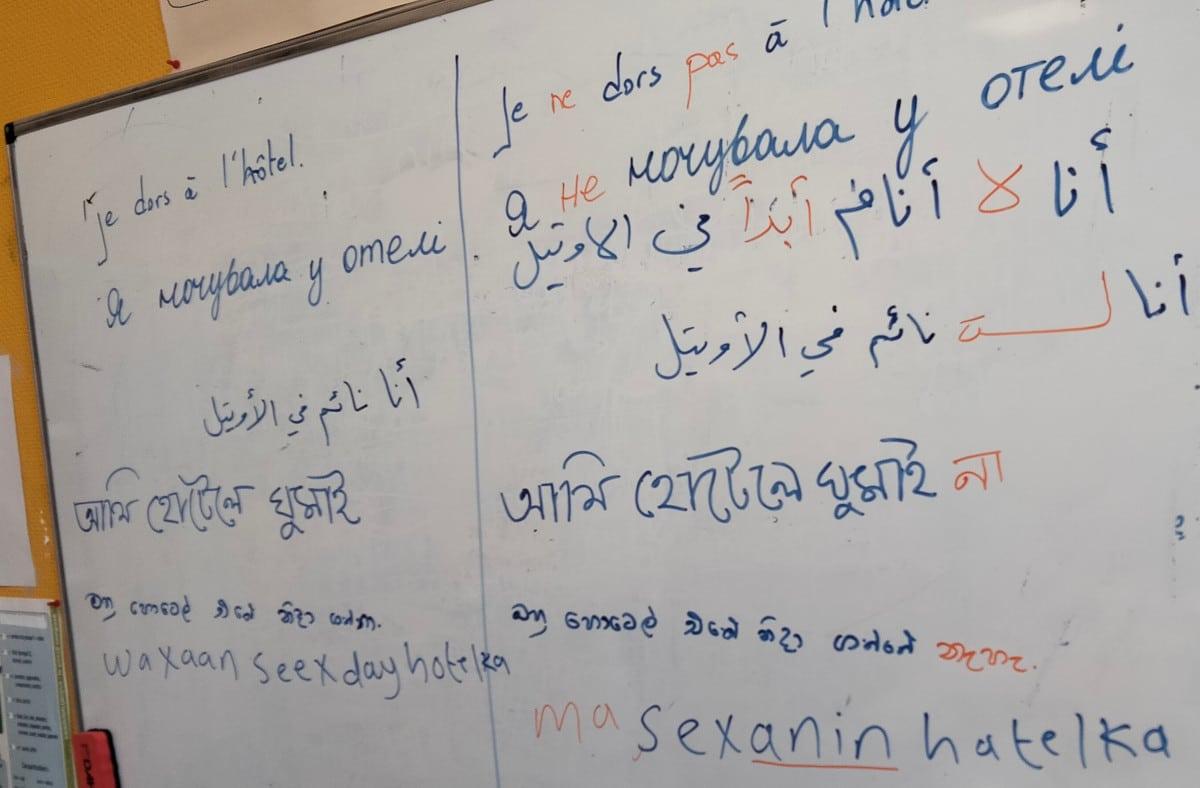 je dors à l'hôtel.
Я ночувала у отелі
أنا نائم في الأوتيل
আমি হোটেলে ঘুমাই
මහු හොටෙල් එකේ නිදා ගන්නා.
waxaan seexday hotelka
je ne dors pas à
Я не ночувала у отелі
أنا لا أنام أبداً في الاوتيل
أنا لست نائم في الأوتيل
আমি হোটেলে ঘুমাই না
හොටෙල් එකේ නිදා ගන්නේ නැහැ.
ma sexanin hatelka